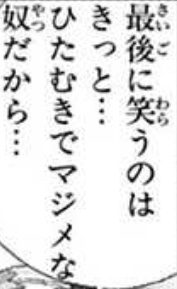 最後に笑うのは
きっと…
ひたむきでマジメな
奴だから…